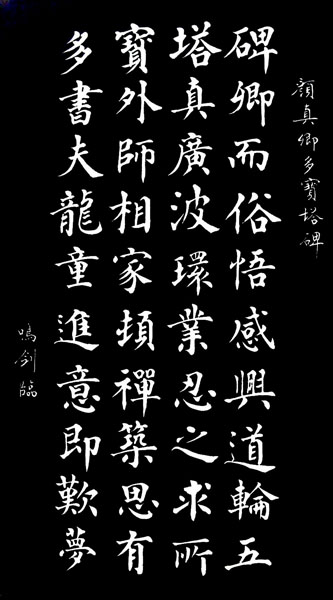 顏真卿多寶塔碑
碑卿而俗悟感興道輪五
塔真廣波環業忍之求所
寶外師相家頓禪築思有
多書夫龍童進意即歎夢
鳴劍臨